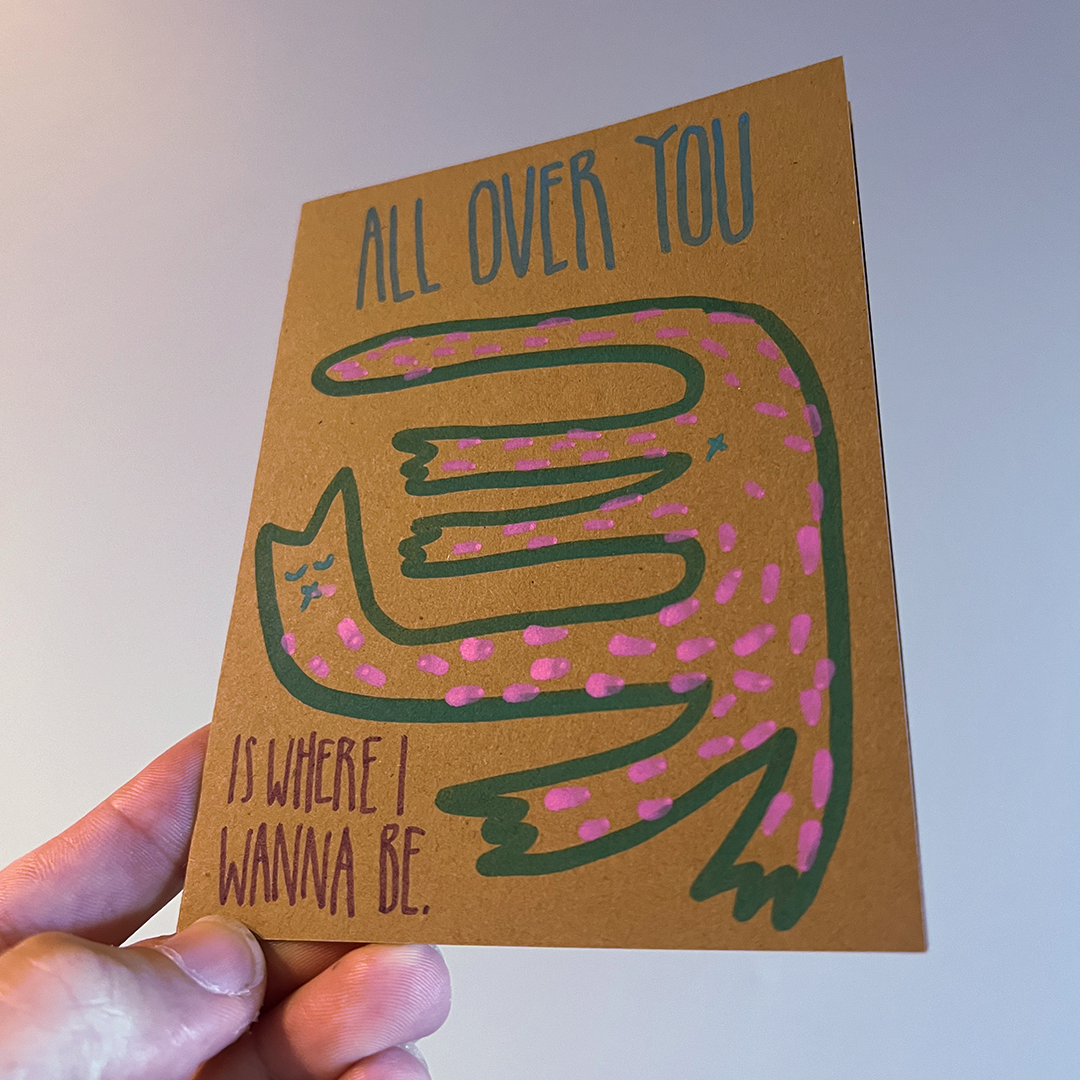 ALL OVER YOU
IS WHERE I
WANNA BE.